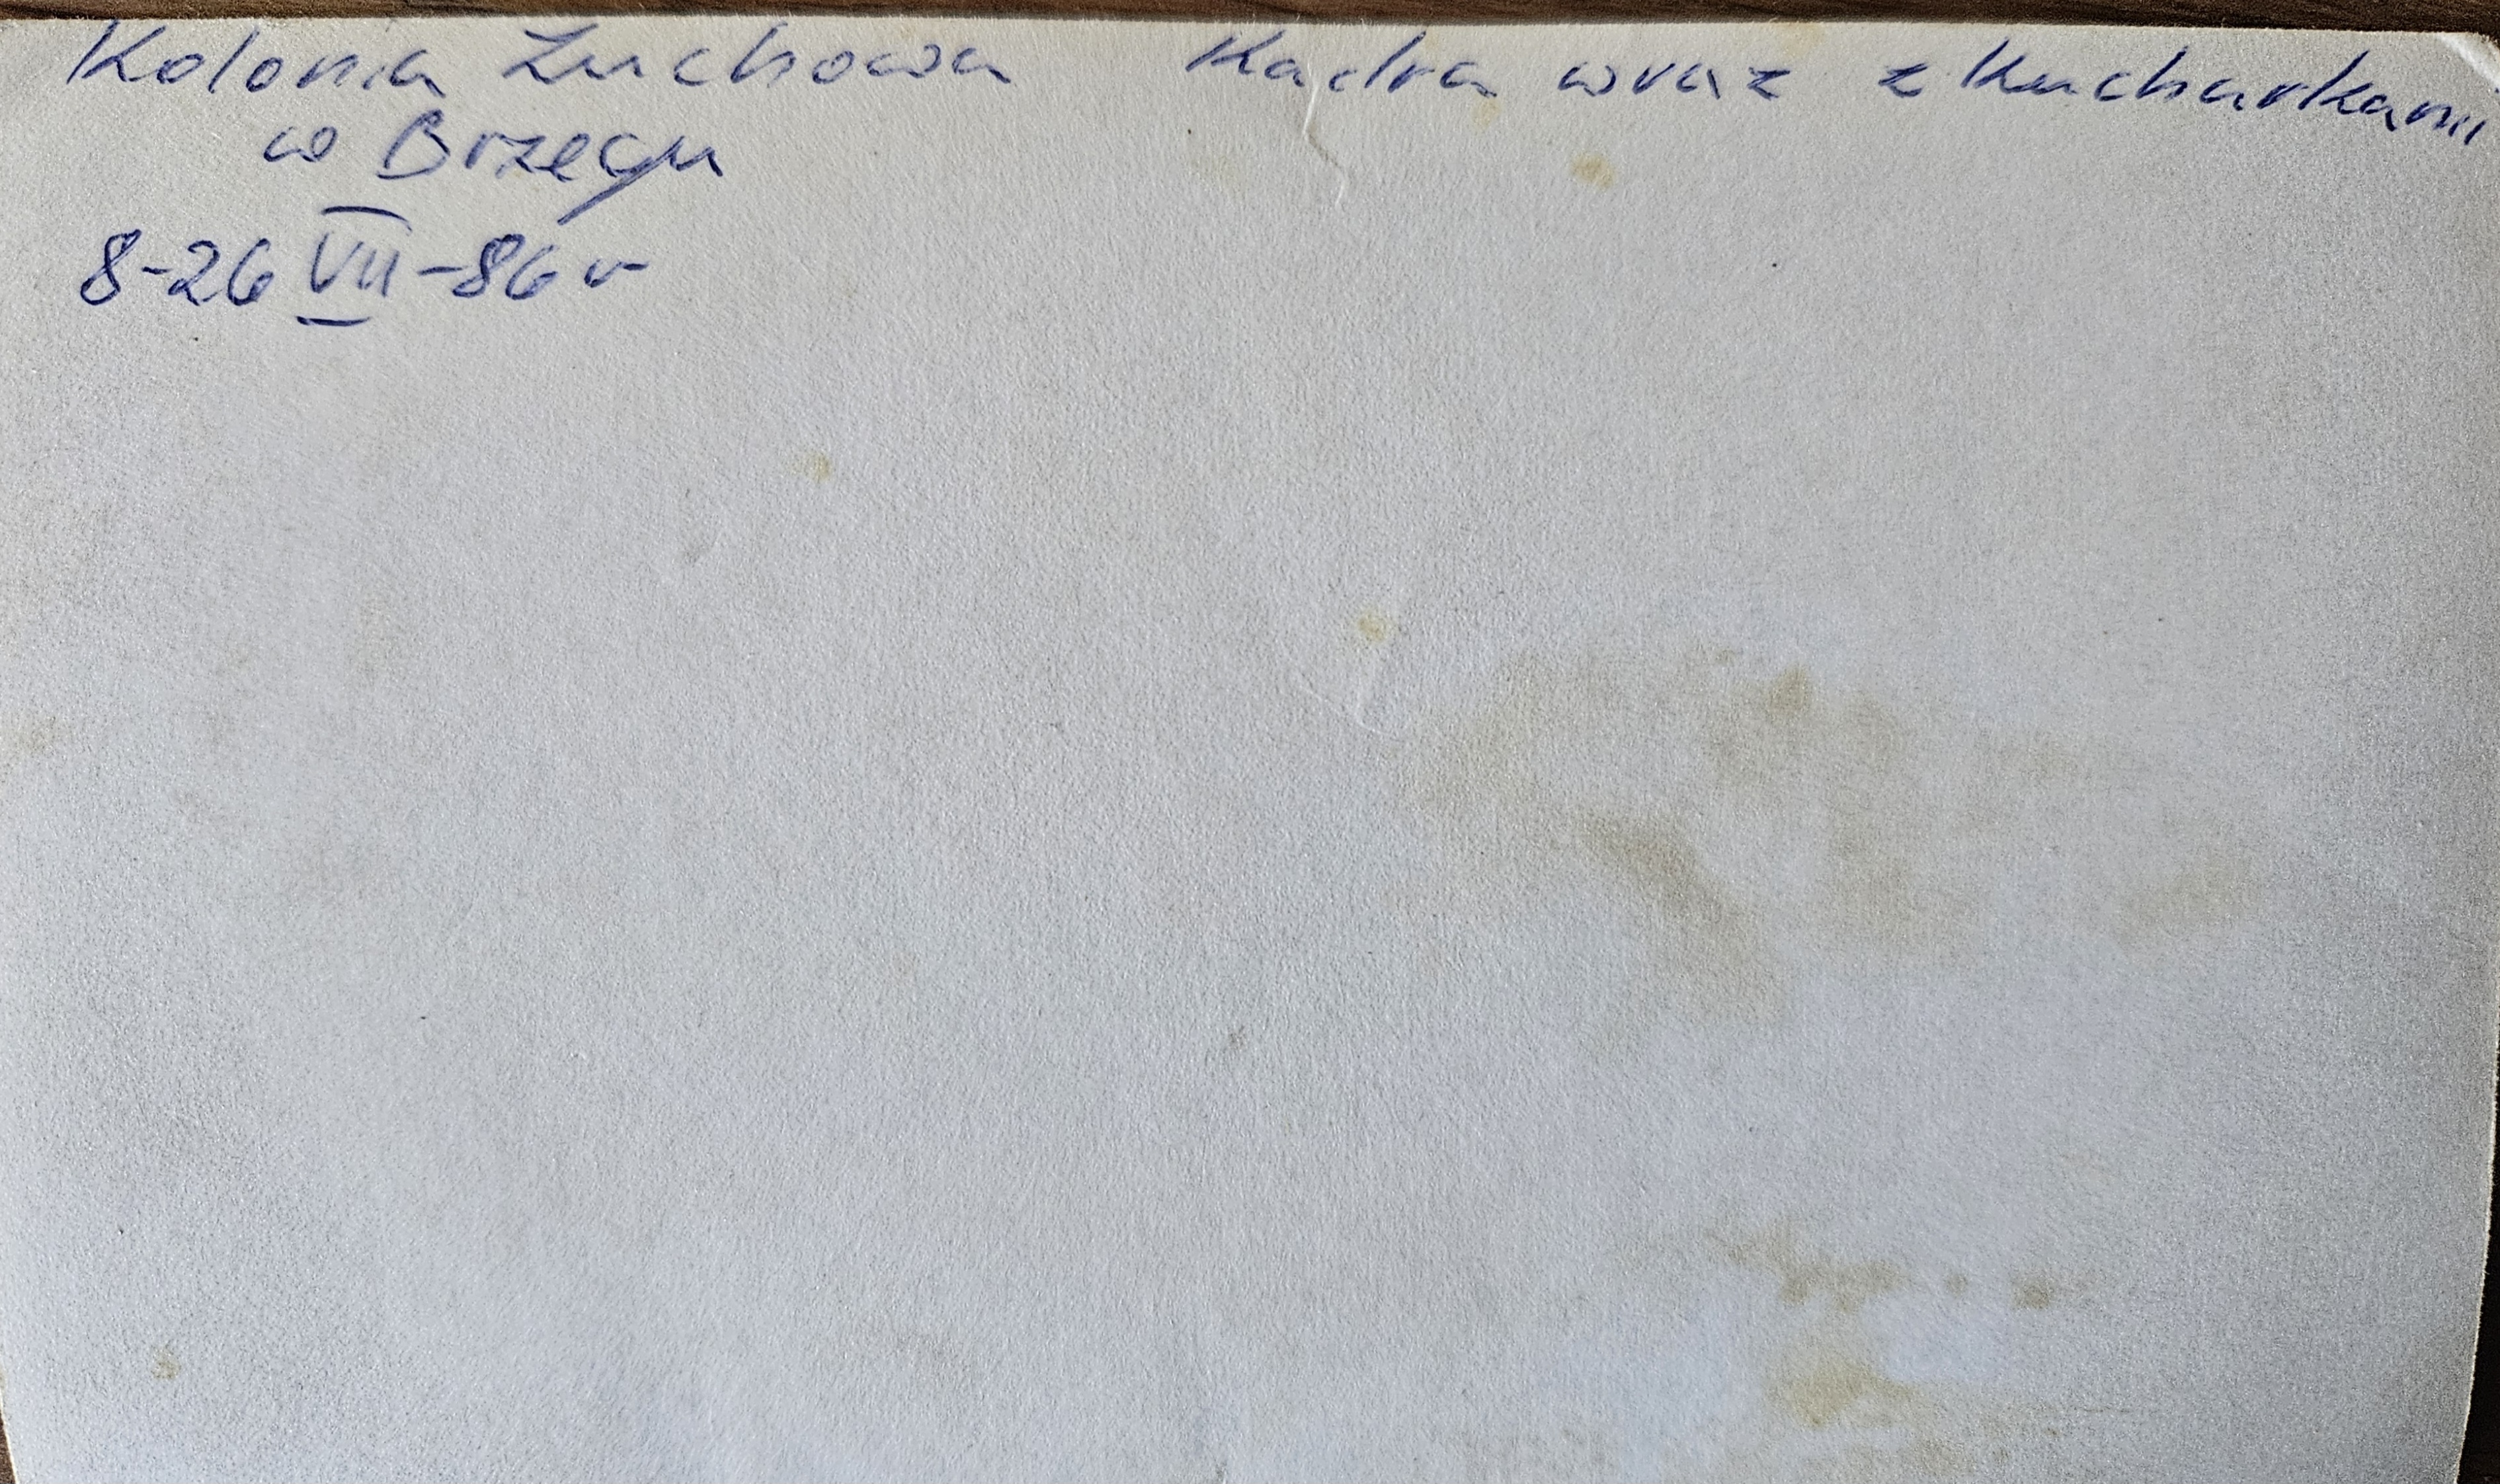 Kolonia Zuchowa Kadra wraz z kucharkami
w Brzegu
8-26 VII -86 r